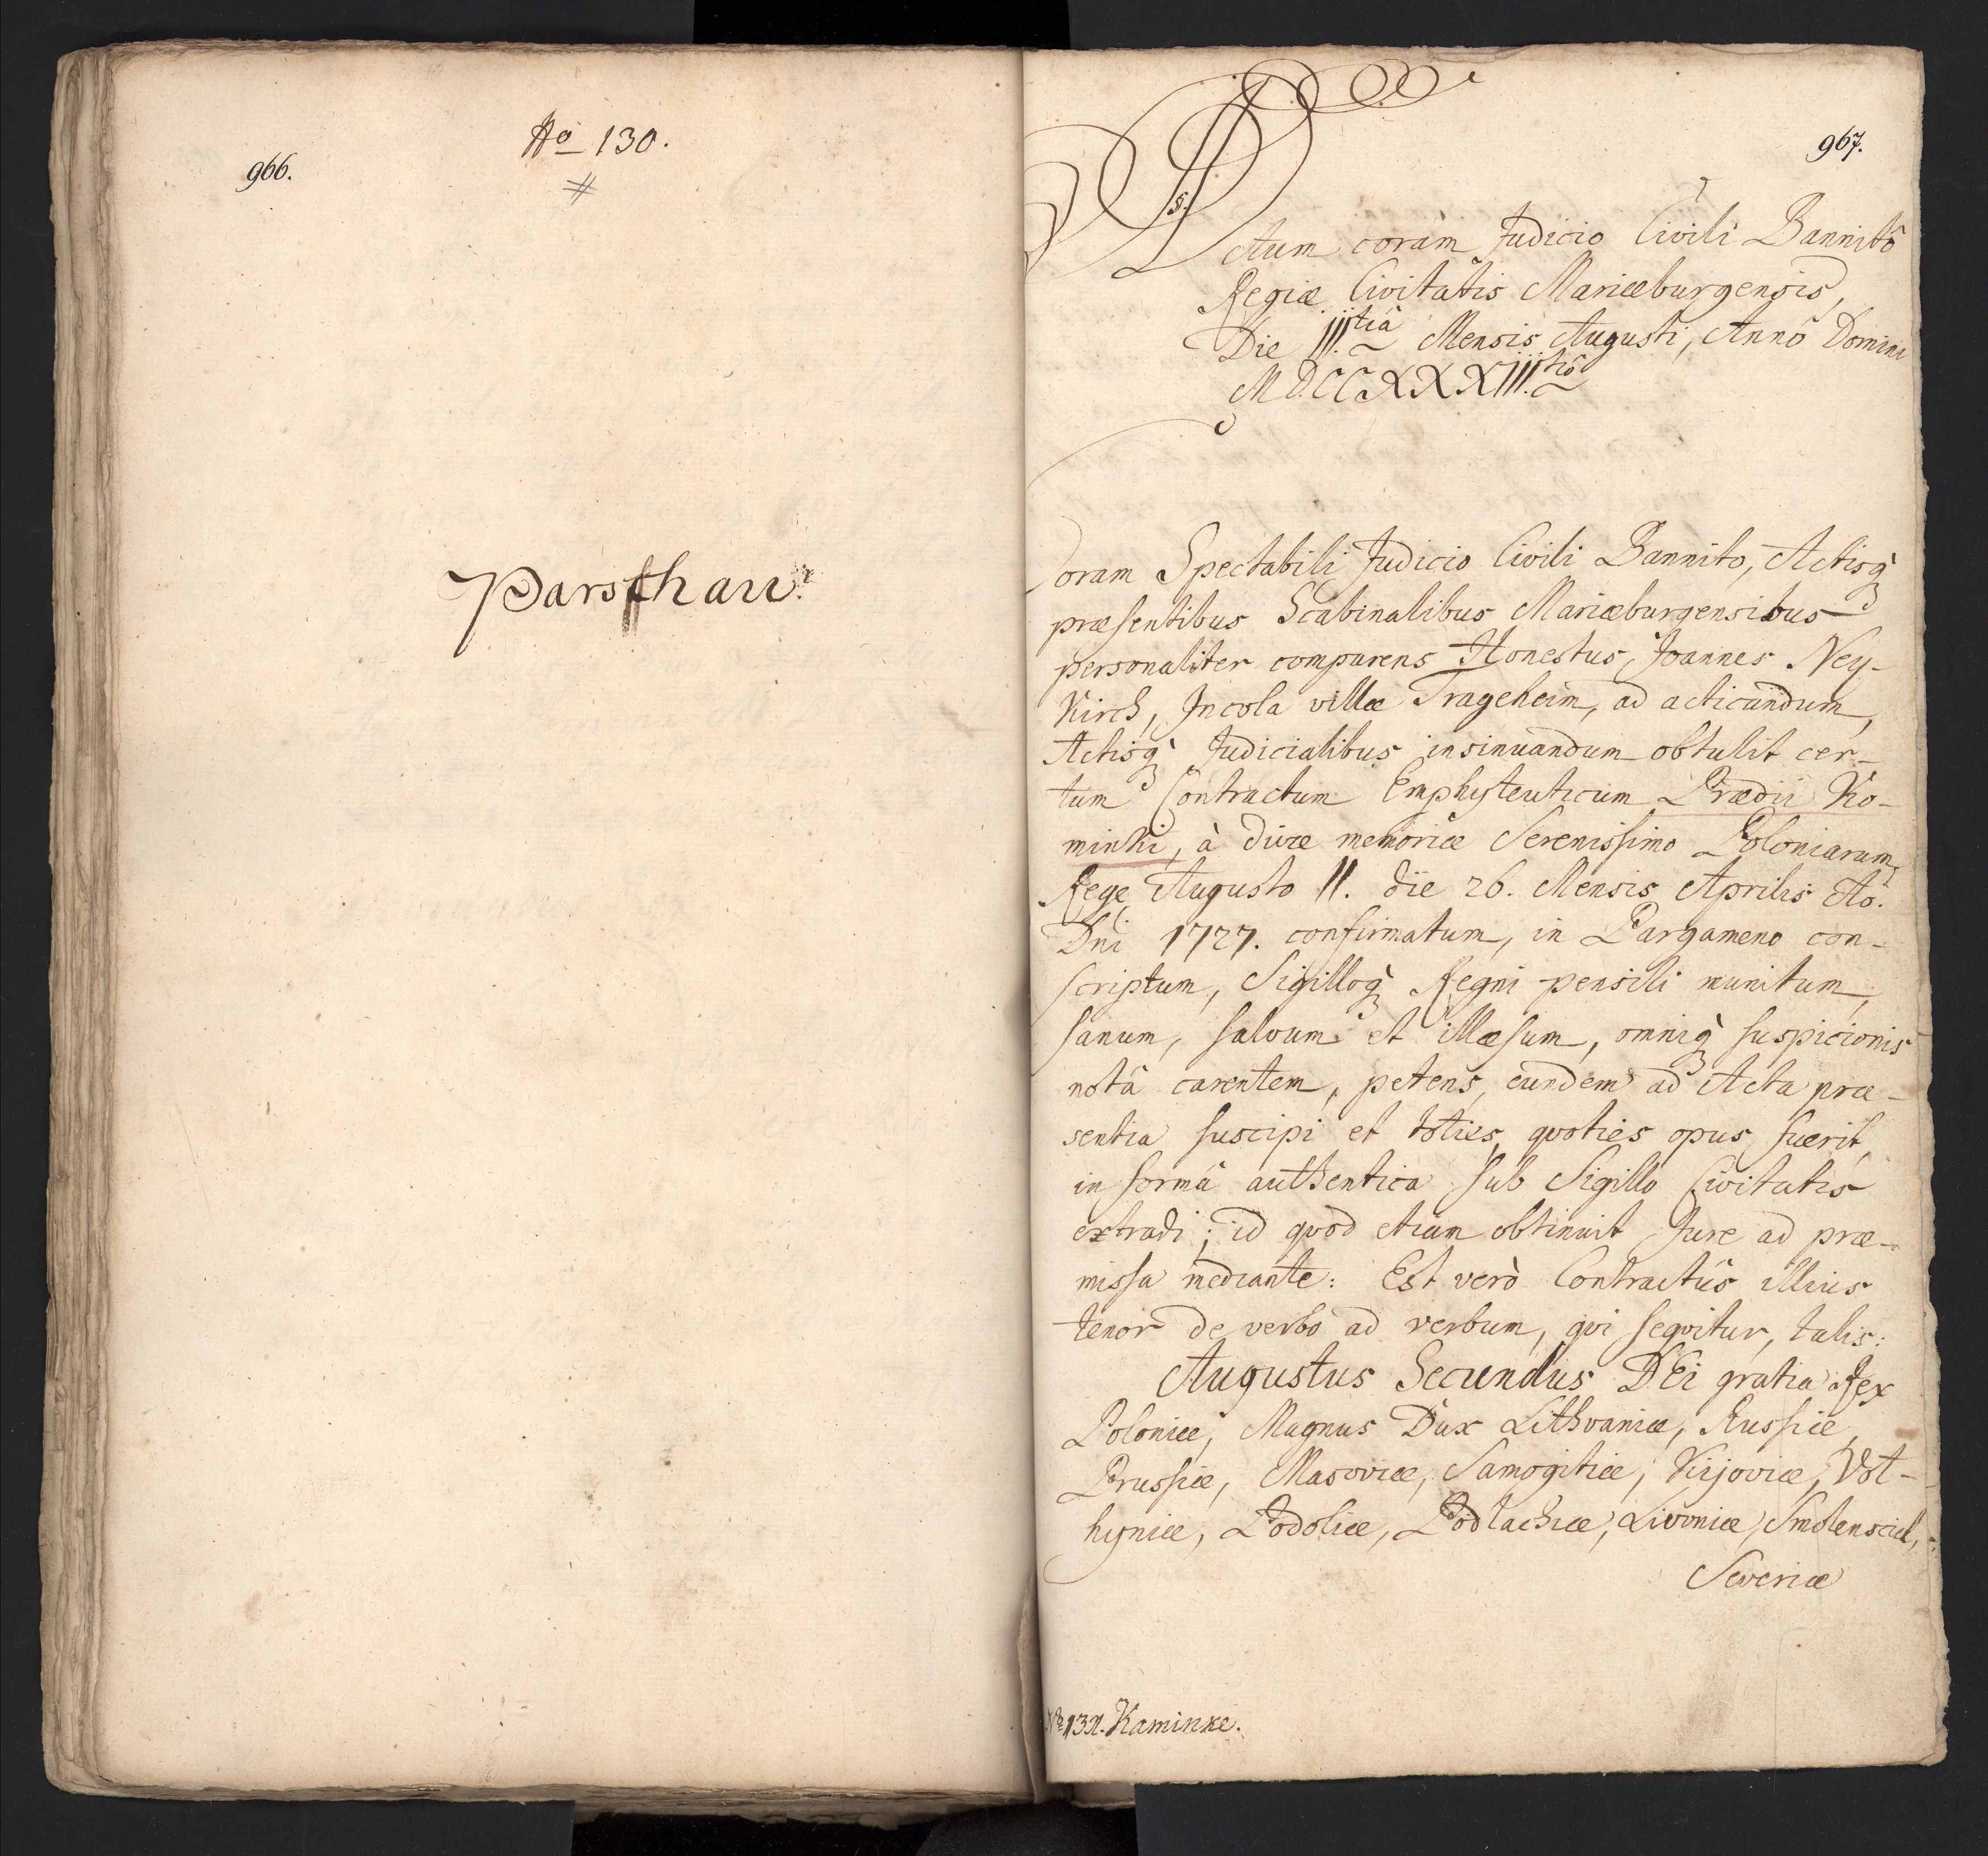 No 130.
966.
#
Parschau.
967.
Actum coram Judicio Civili Bannitô
Regiæ Civitatis Mariæburgensis,
Die III.tiâ Mensis Augusti, Annô Domini
MDCCXXXIII.tiô
Coram Spectabili Judicio Civili Bannito, Actisq̀
præsentibus Scabinalibus Mariæburgensibus
personaliter comparens Honestus, Joannes Ney-
Kirch, Incola villæ Trageheim, ad acticandum,
Actisq̀ Judicialibus insinuandum obtulit cer-
tum Contractum Emphyteuticum Prædii Ko-
minki, à divæ memoriæ Serenissimo Poloniarum
Rege Augusto II. die 26. Mensis Aprilis Aõ.
Dni 1727. confirmatum, in Pargameno con-
scriptum, Sigilloq̀ Regni pensili munitum,
sanum, salvum et illæsum, omniq̀ suspicionis
notâ carentem, petens, eundem ad Acta præ-
sentia suscipi et toties, qvoties opus fuerit,
in formâ authentica sub Sigillo Civitatis
extradi; id qvod etiam obtinuit Jure ad præ-
missa mediante: Est verò Contractûs illius
tenor de verbo ad verbum, qvi seqvitur, talis:
Augustus Secundus DEi gratia Rex
Poloniæ, Magnus Dux Lithvaniæ, Russiæ,
Prussiæ, Masoviæ, Samogitiæ, Kijoviæ, Vol-
hyniæ, Podoliæ, Podlachiæ, Livoniæ, Smolensciæ,
Severiæ
No 131. Kaminke.